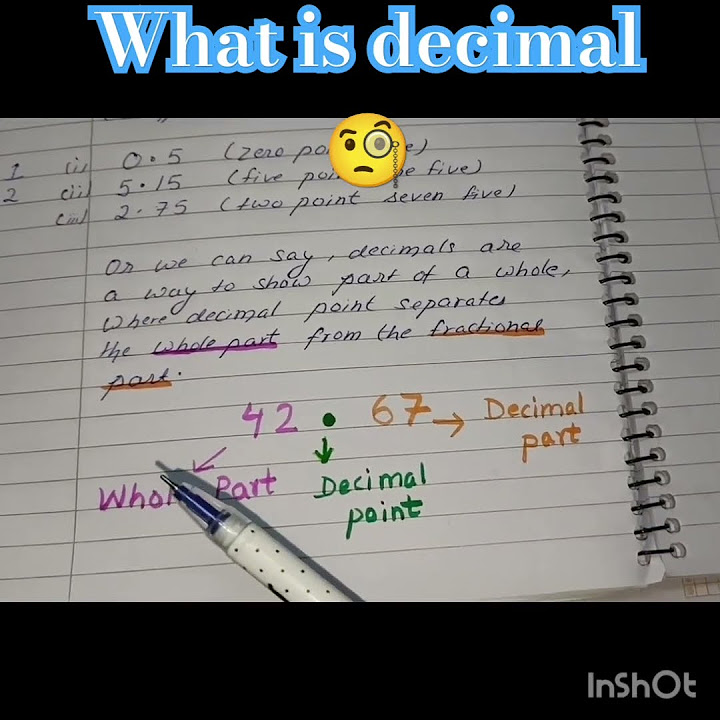 What is decimal
1 (i) 0.5 (zero
2 (ii) 5.15 (five five)
(iii) 2.75 (two point seven five)
Or we can say, decimals are
a way to show part of a whole,
where decimal point separates
the whole part from the fractional
part.
42 . 67 → Decimal
part
Part Decimal
point
InShOt